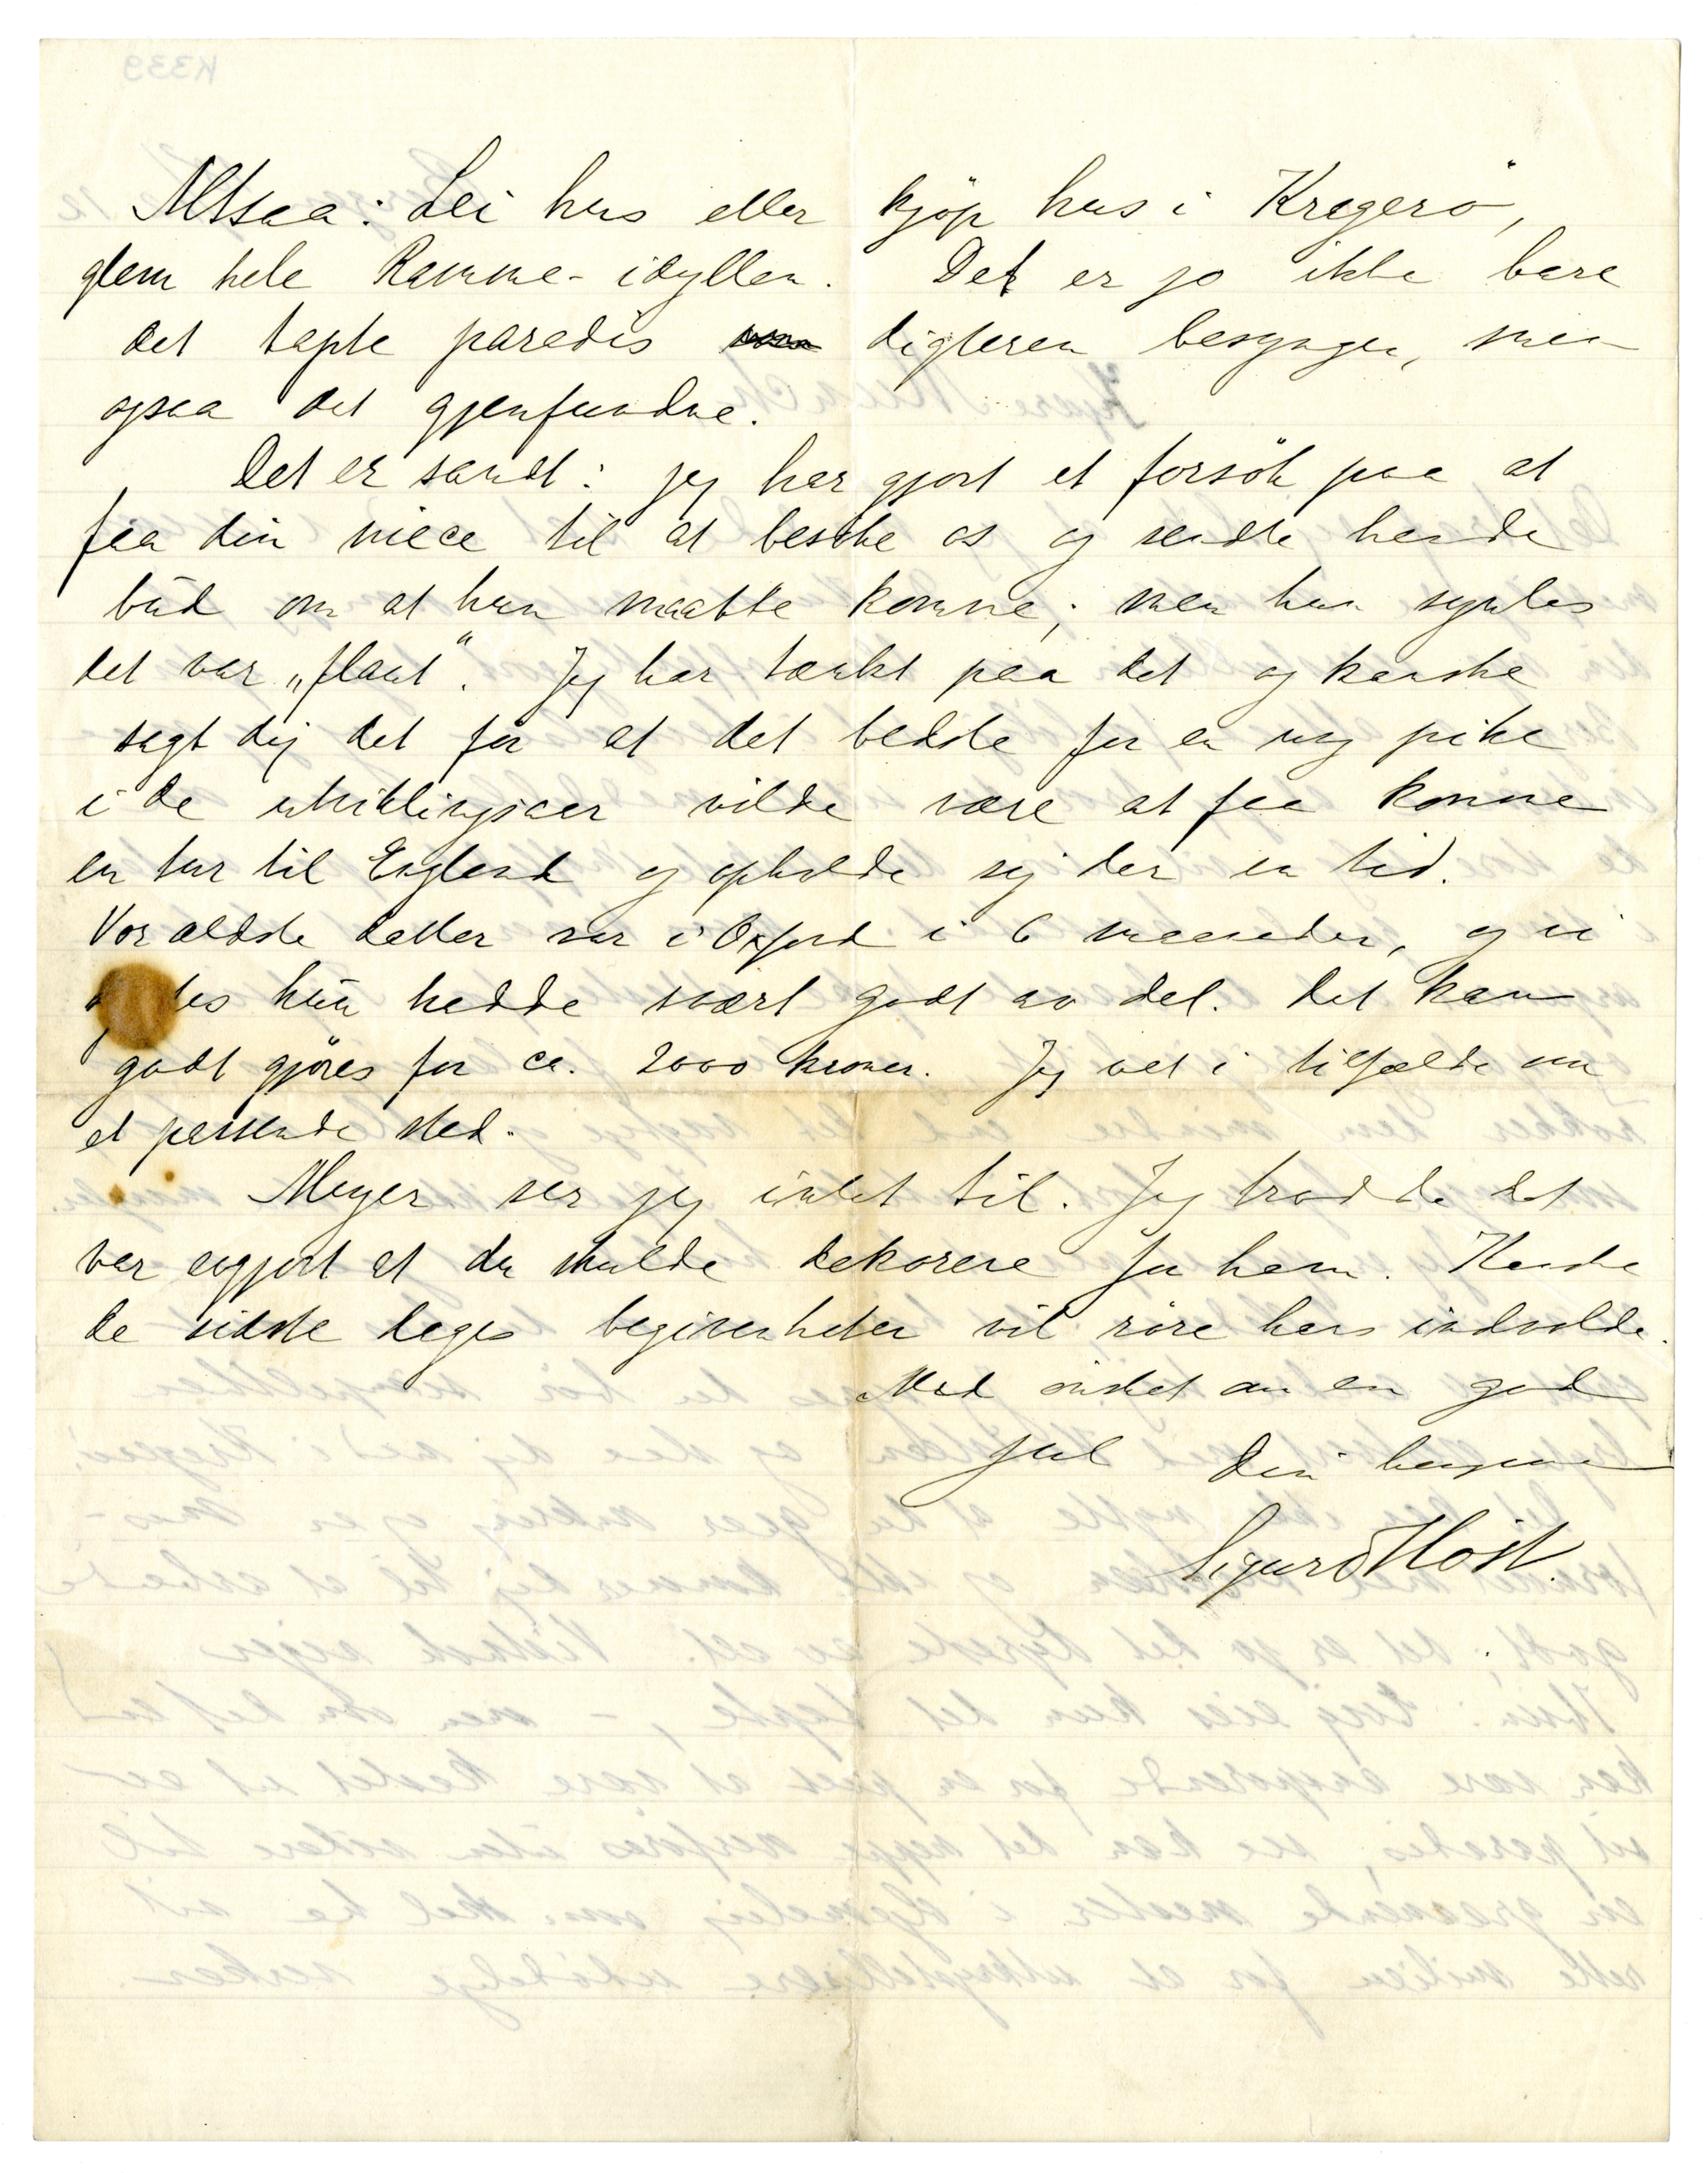 Altsaa: Lei hus eller kjöp hus i Kragerö,
glem hele Ramme-idyllen. Det er jo ikke bare
det tapte paradis digteren besynger, men
ogsaa det gjenfundne.
Det er sandt: jeg har gjort et forsök paa at
faa din niece til at besöke os og sendte hende
bud om at hun maatte komme; men hun syntes
det var „flaut". Jeg har tænkt paa det og kanske
sagt dig det før at det bedste for en ung pike
i de utviklingsaar vilde være at faa komme
en tur til England og opholde sig der en tid.
Vor ældste datter var i Oxford i 6 maaneder, og vi
hun hadde svært godt av det. Det kan
godt gjöres for ca. 2000 kroner. Jeg vet i tilfælde om
et passende sted.
Meyer ser jeg intet til. Jeg trodde det
var avgjort at du skulde dekorere for ham. Kanske
de sidste dages begivenheter vil röre hans indvolde.
Med önsket om en god
jul Din hengivne
Sigurd Höst.
K339